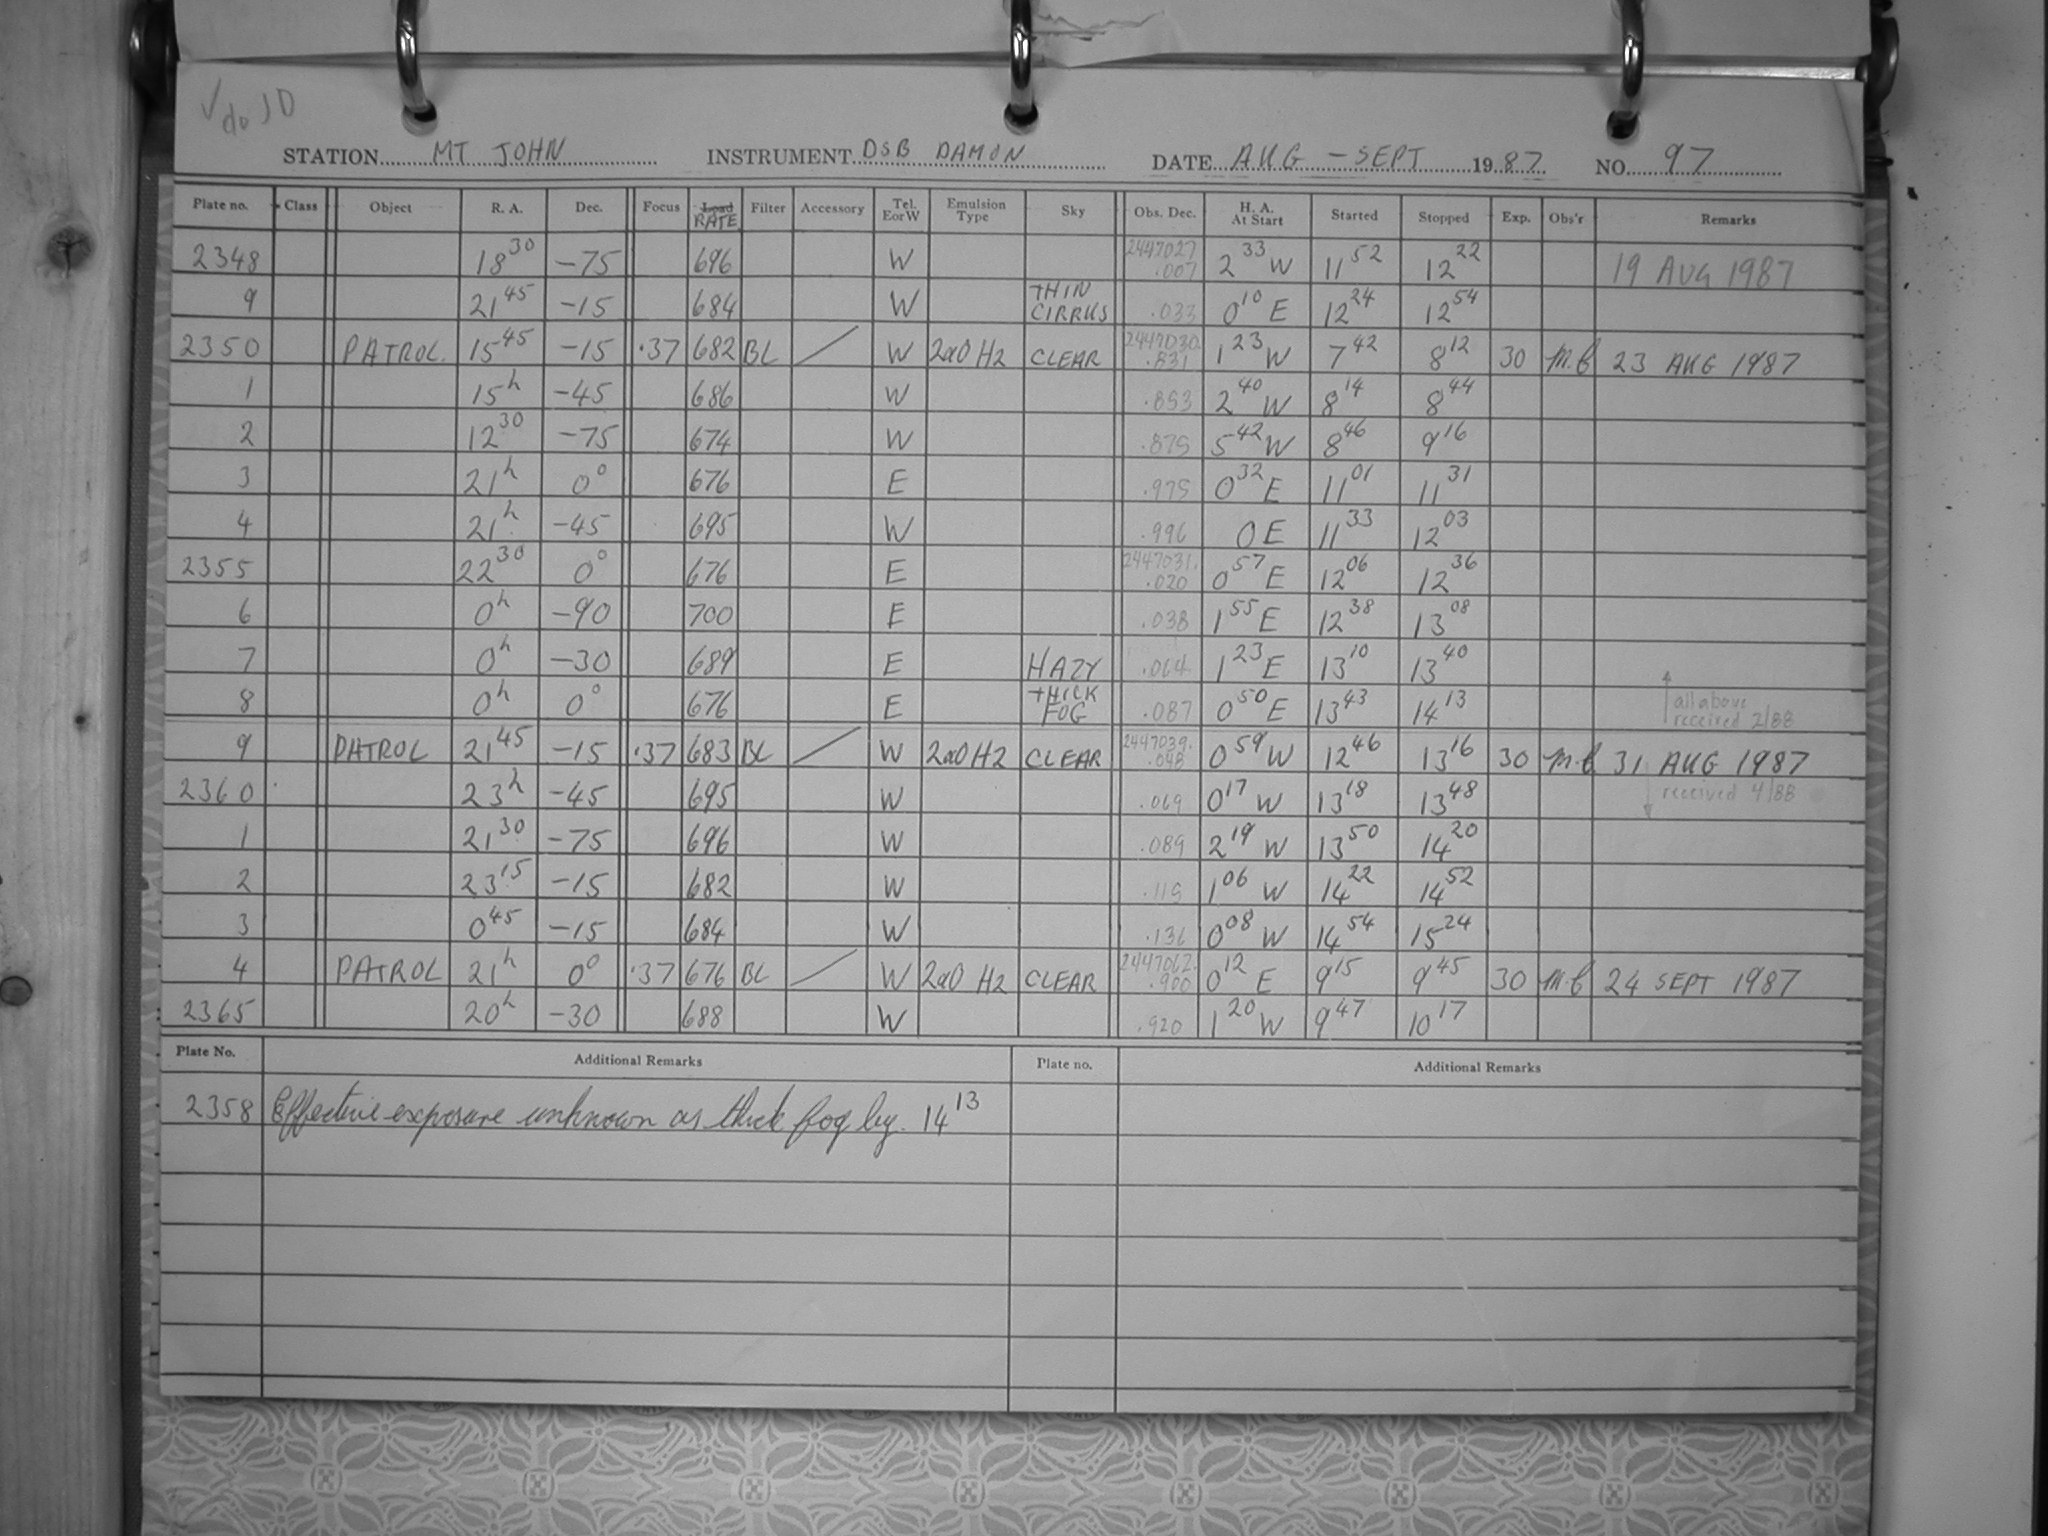 ✓ do JD
STATION MT JOHN INSTRUMENT DSB DAMON DATE AUG – SEPT 1987 NO. 97
Plate no. Class Object R. A. Dec. Focus Load RATE Filter Accessory Tel. E or W Emulsion Type Sky Obs. Dec. H. A. At Start Started Stopped Exp. Obs'r Remarks
2348 18 30 -75 696 W 2447027 .007 2 33 W 11 52 12 22 19 AUG 1987
9 21 45 -15 684 W THIN CIRRUS .033 0 10 E 12 24 12 54
2350 PATROL. 15 45 -15 .37 682 BL / W 2aO H2 CLEAR 2447030. .831 1 23 W 7 42 8 12 30 M.C 23 AUG 1987
1 15 h -45 686 W .853 2 40 W 8 14 8 44
2 12 30 -75 674 W .875 5 42 W 8 46 9 16
3 21 h 0° 676 E .975 0 32 E 11 01 11 31
4 21 h -45 695 W .996 0 E 11 33 12 03
2355 22 30 0° 676 E 2447031. .020 0 57 E 12 06 12 36
6 0 h -90 700 E .038 1 55 E 12 38 13 08
7 0 h -30 689 E HAZY .064 1 23 E 13 10 13 40
8 0 h 0° 676 E THICK FOG .087 0 50 E 13 43 14 13 all above received 2/88
9 PATROL 21 45 -15 .37 683 BL / W 2aO H2 CLEAR 2447039. .048 0 59 W 12 46 13 16 30 M.C 31 AUG 1987
2360 23 h -45 695 W .069 0 17 W 13 18 13 48 received 4/88
1 21 30 -75 696 W .089 2 19 W 13 50 14 20
2 23 15 -15 682 W .115 1 06 W 14 22 14 52
3 0 45 -15 684 W .136 0 08 W 14 54 15 24
4 PATROL 21 h 0° .37 676 BL / W 2aO H2 CLEAR 2447062. .900 0 12 E 9 15 9 45 30 M.C 24 SEPT 1987
2365 20 h -30 688 W .920 1 20 W 9 47 10 17
Plate No. Additional Remarks Plate no. Additional Remarks
2358 Effective exposure unknown as thick fog by. 14 13